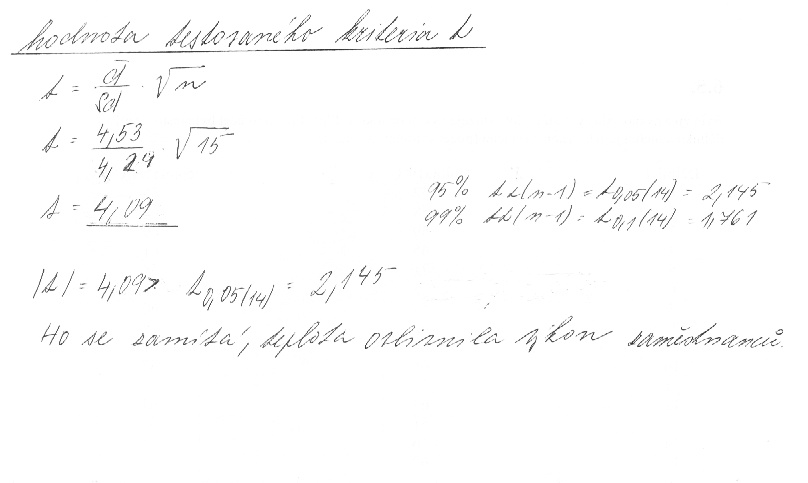 hodnota testovaného kriteria t
t = d̄/sd · √n
t = 4,53/4,29 · √15
t = 4,09
95% tα(n-1) = t0,05(14) = 2,145
99% tα(n-1) = t0,1(14) = 1,761
|t| = 4,09 > t0,05(14) = 2,145
Ho se zamítá, teplota ovlivnila výkon zaměstnanců.